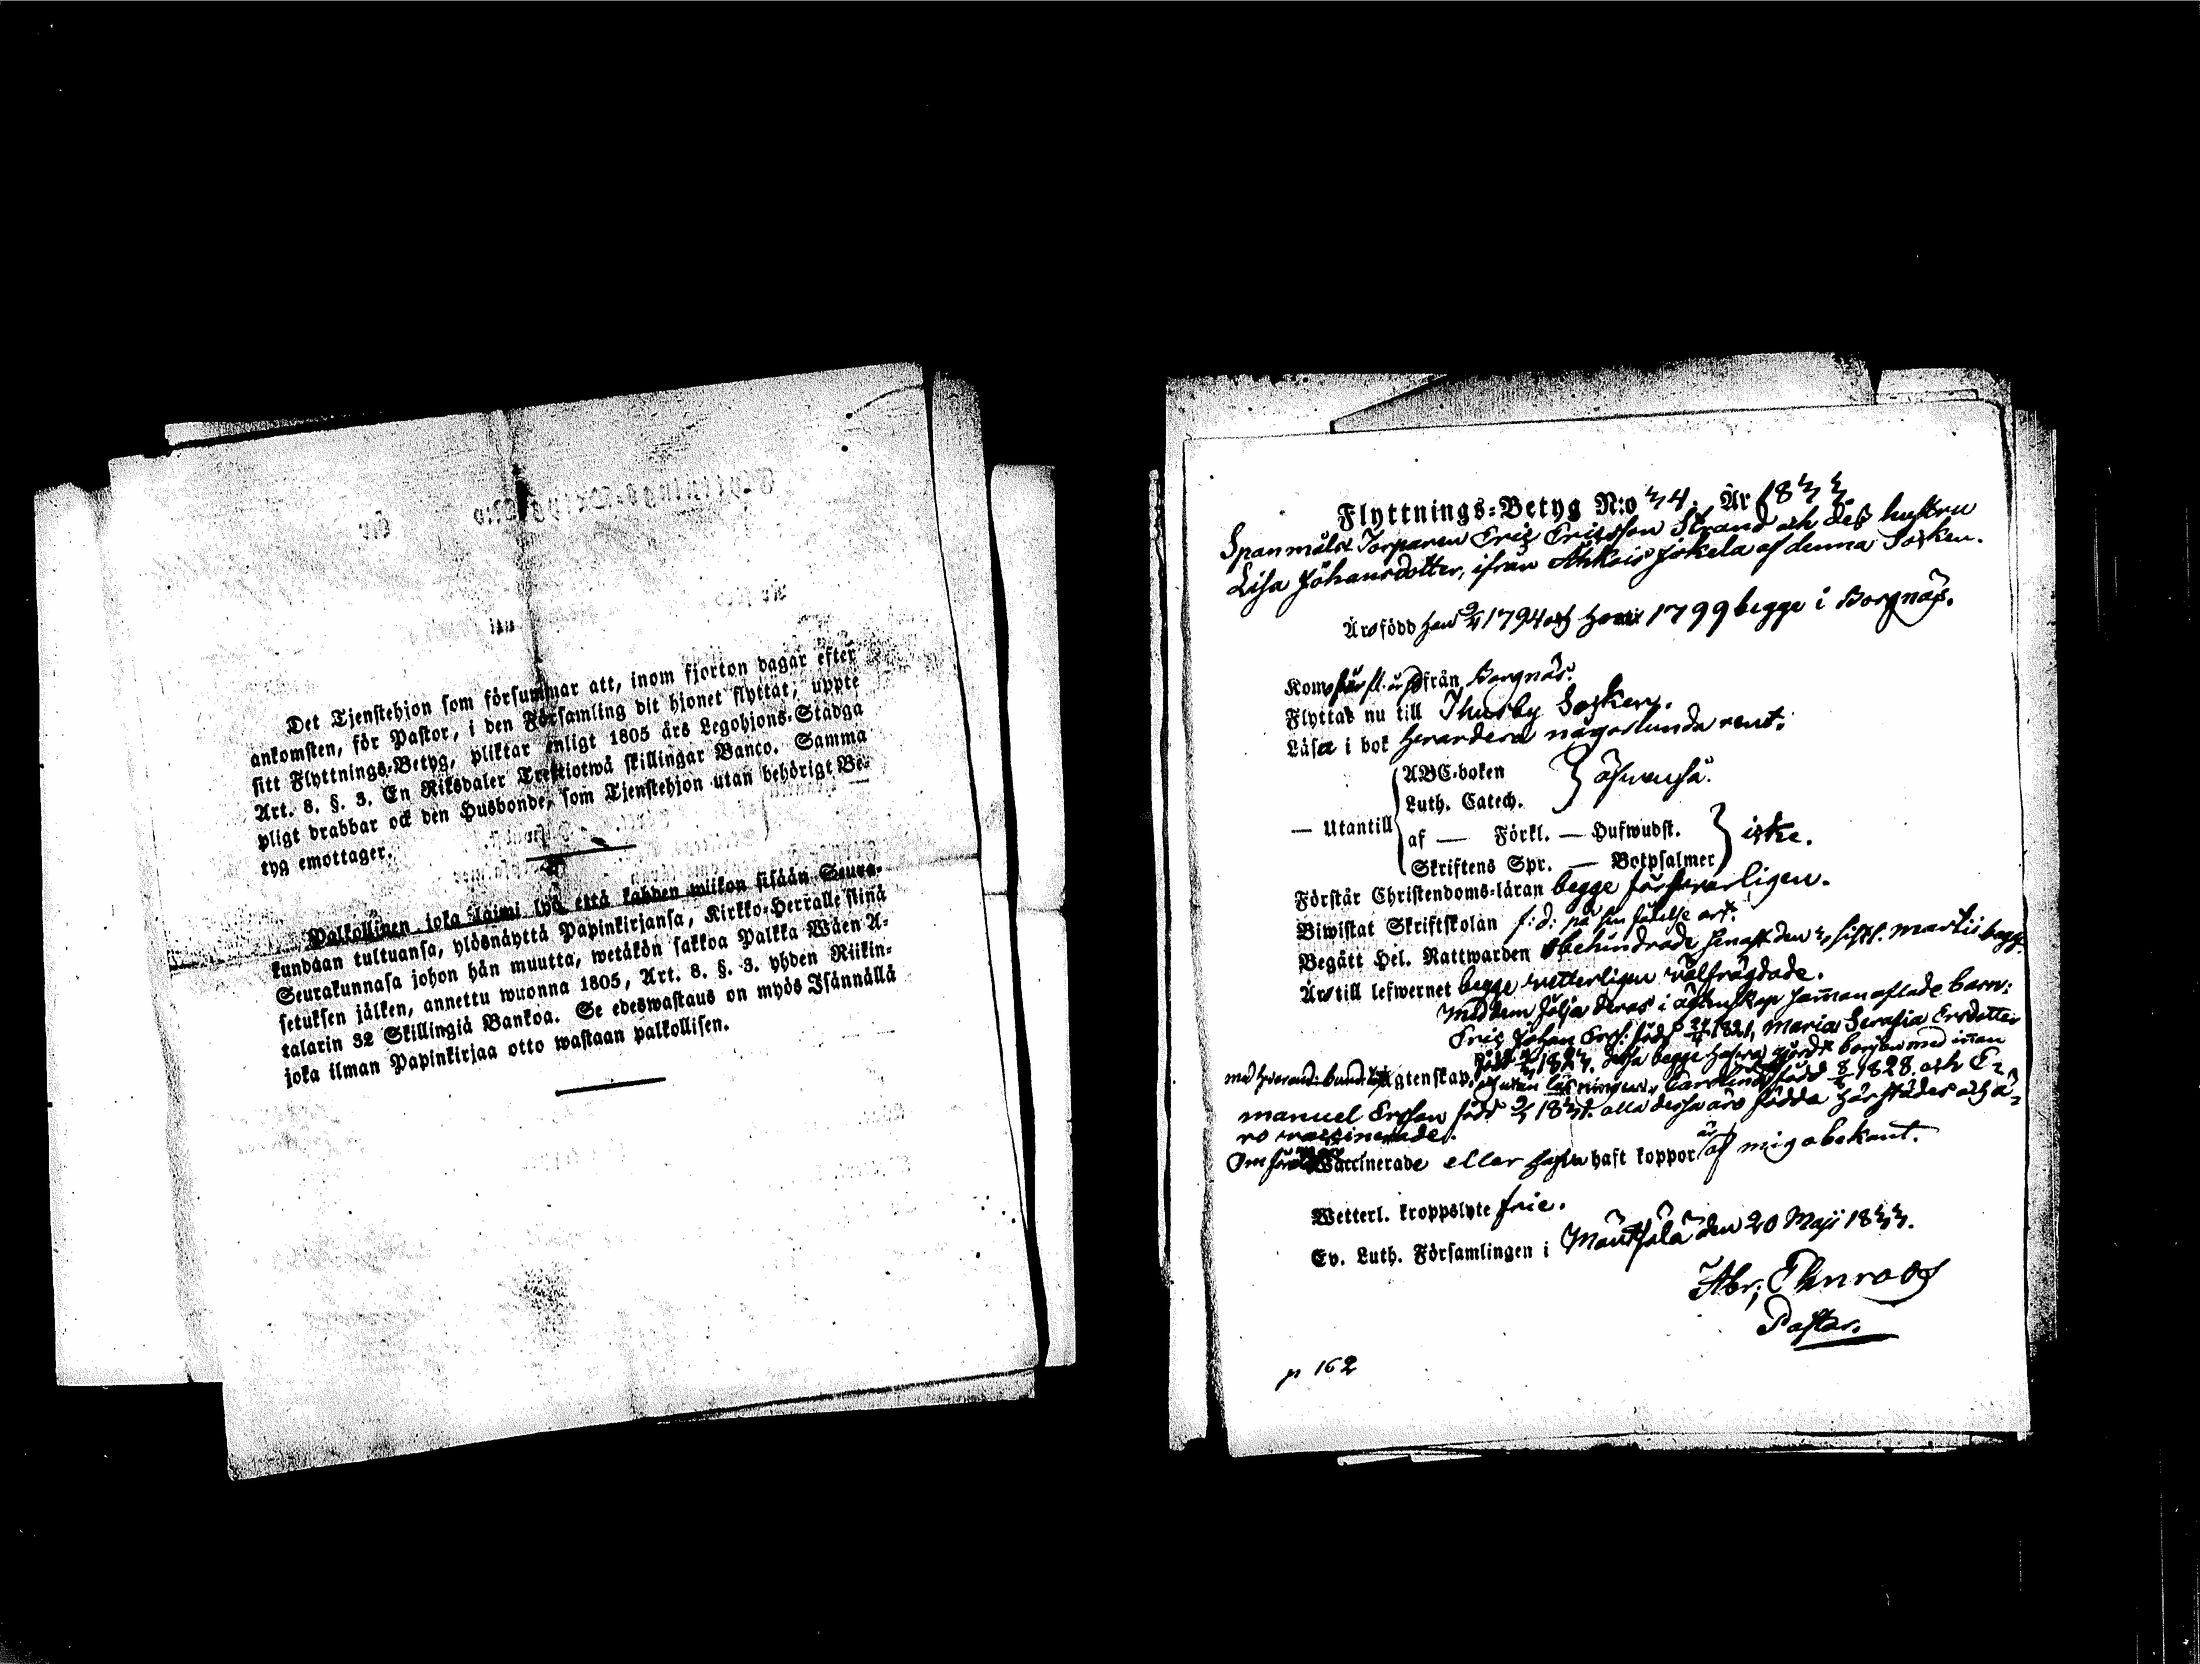 Det Tjenstehjon som försummar att, inom fjorton dagar efter
ankomsten, för Pastor, i den Församling dit hjonet flyttat, uppte
sitt Flyttnings-Betyg, pliktar enligt 1805 års Legohjons-Stadga
Art. 8. §. 3. En Riksdaler Trettiotwå skillingar Banco. Samma
pligt drabbar ock den Husbonde, som Tjenstehjon utan behörigt Be-
tyg emottager.
Palkollinen joka laimi lyö että kahden wiikon sisään Seura-
kundaan tultuansa, ylösnäyttä Papinkirjansa, Kirkko-Herralle siinä
Seurakunnasa johon hän muutta, wetäkön sakkoa Palkka Wäen A-
setuksen jälken, annettu wuonna 1805, Art. 8. §. 3. yhden Riikin-
talarin 32 Skillingiä Bankoa. Se edeswastaus on myös Isännällä
joka ilman Papinkirjaa otto wastaan palkollisen.
Flyttnings-Betyg N:o 4. År 18
Spanmåls Torparen Eric Ericsson Strand och dess hustru
Lisa Johansdotter, ifrån Jokela af denna Socken.
Äro född han 1794 och hon 1799 begge i Borgnäs.
Kom från Borgnäs.
Flyttas nu till Thusby Socken.
Läsa i bok någorlunda rent.
ABC-boken
Luth. Catech.
— Utantill
af — Förkl. — Hufwudst.
Skriftens Spr. — Botpsalmer
icke.
Förstår Christendoms-läran begge försvarligen.
Biwistat Skriftskolan på sin födelse ort.
Begått Hel. Nattwarden obehindrade senast den sistl. Martii begge
Äro till lefwernet begge wetterligen wälfrägdade.
Med dem följa deras i ägtenskap samman aflade barn:
Eric Johan född 1821, Maria Serafia Ersdotter
född begge hafva början med innan
Ägtenskap och utan läsningen, Carolina född 1828. och E-
manuel Ersson född alla dessa äro födda härstädes och ä-
ro vaccinerade.
Om Vaccinerade eller hafva haft koppor är af mig obekant.
Wetterl. kroppslyte frie.
Ev. Luth. Församlingen i Mäntsälä den 20 Maji 18
Abr. Ehnroos
Pastor.
p 162